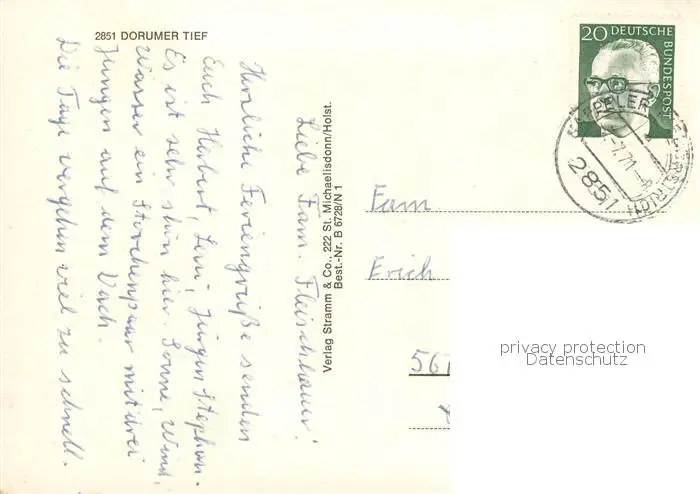 2851 DORUMER TIEF
Liebe Fam. Fleischhauer!
Herzliche Feriengrüße senden
Euch Herbert, Leni, Jürgen Stephan.
Es ist sehr schön hier. Sonne, Wind,
Wasser ein Storchenpaar mit drei
Jungen auf dem Dach.
Die Tage vergehen viel zu schnell.
Verlag Stramm & Co., 222 St. Michaelisdonn/Holst.
Best.-Nr. B 6728/N 1
20 DEUTSCHE
BUNDESPOST
2851
Fam
Erich
561
privacy protection
Datenschutz